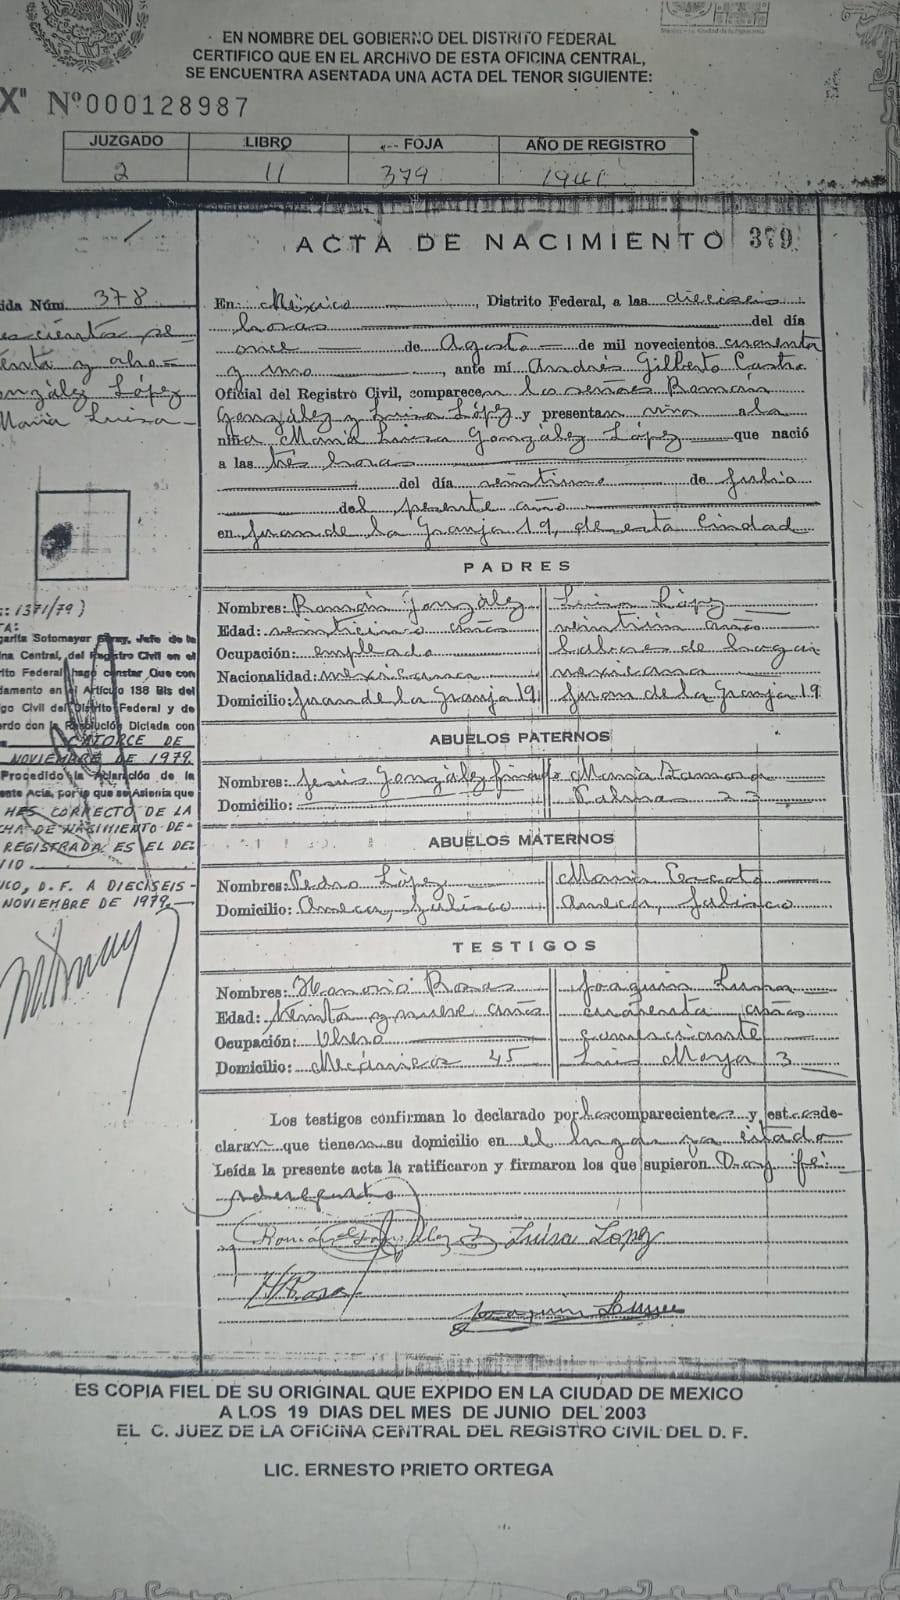 EN NOMBRE DEL GOBIERNO DEL DISTRITO FEDERAL
CERTIFICO QUE EN EL ARCHIVO DE ESTA OFICINA CENTRAL,
SE ENCUENTRA ASENTADA UNA ACTA DEL TENOR SIGUIENTE:
X" Nº000128987
JUZGADO LIBRO FOJA AÑO DE REGISTRO
2 11 379 1941
ACTA DE NACIMIENTO 379
ida Núm. 378
enta y ocho
onzález López
María Luisa
En: México, Distrito Federal, a las dieciseis
horas del día
once de Agosto de mil novecientos cuarenta
y uno, ante mí Andrés Gilberto Castro
Oficial del Registro Civil, comparecen los señores Román
González y Luisa López y presentan viva a la
niña María Luisa González López que nació
a las tres horas
del día veintiuno de Julio
del presente año
en Juan de la Granja 19, de esta Ciudad
: 1371/79)
TA:
garita Sotomayor Jefe de la
ina Central, del Registro Civil en el
rito Federal hago constar Que con
damento en el Artículo 138 Bis del
go Civil del Distrito Federal y de
erdo con la Resolución Dictada con
CATORCE DE
NOVIEMBRE DE 1979.
Procedido la Aclaración de la
ente Acta, por lo que se Asienta que
MES CORRECTO DE LA
CHA DE NACIMIENTO DE-
REGISTRADA ES EL DE:
IO
ICO, D. F. A DIECISEIS -
NOVIEMBRE DE 1979.
PADRES
Nombres: Román González Luisa López
Edad: veinticinco años veintiún años
Ocupación: empleado labores de hogar
Nacionalidad: mexicana mexicana
Domicilio: Juan de la Granja 19 Juan de la Granja 19
ABUELOS PATERNOS
Nombres: Jesús González finado María
Domicilio: 23
ABUELOS MATERNOS
Nombres: Pedro López María
Domicilio: Ameca, Jalisco Ameca, Jalisco
TESTIGOS
Nombres: Rosas Joaquín
Edad: treinta y nueve años cuarenta años
Ocupación: Obrero comerciante
Domicilio: Mecánicos 45 Luis Moya 3
Los testigos confirman lo declarado por los comparecientes y estos de-
claran que tienen su domicilio en el lugar ya citado
Leída la presente acta la ratificaron y firmaron los que supieron Doy fe:
Román González Luisa Lopez
H Rosas
Joaquin
ES COPIA FIEL DE SU ORIGINAL QUE EXPIDO EN LA CIUDAD DE MEXICO
A LOS 19 DIAS DEL MES DE JUNIO DEL 2003
EL C. JUEZ DE LA OFICINA CENTRAL DEL REGISTRO CIVIL DEL D. F.
LIC. ERNESTO PRIETO ORTEGA